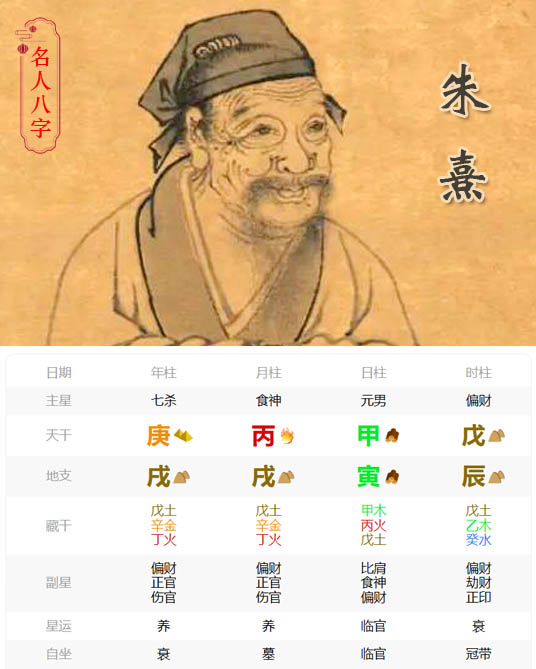 名人八字
朱熹
日期 年柱 月柱 日柱 时柱
主星 七杀 食神 元男 偏财
天干 庚 丙 甲 戊
地支 戌 戌 寅 辰
藏干 戊土 戊土 甲木 戊土
辛金 辛金 丙火 乙木
丁火 丁火 戊土 癸水
副星 偏财 偏财 比肩 偏财
正官 正官 食神 劫财
伤官 伤官 偏财 正印
星运 养 养 临官 衰
自坐 衰 墓 临官 冠带